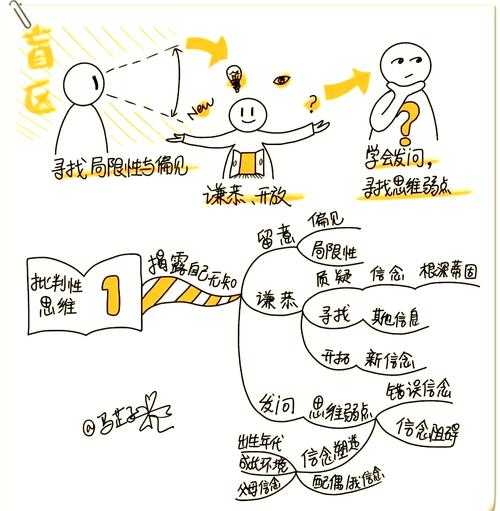 盲区
New
?
寻找局限性与偏见
谦恭、开放
?
学会发问，
寻找思维弱点
批判性
思维
1
揭露自己无知
留意
偏见
局限性
谦恭
质疑 信念 根深蒂固
寻找 其他信息
开拓 新信念
发问 思维弱点
错误信念
信念阻碍
信念塑造
出生年代
成长环境
父母信念
配偶/我信念